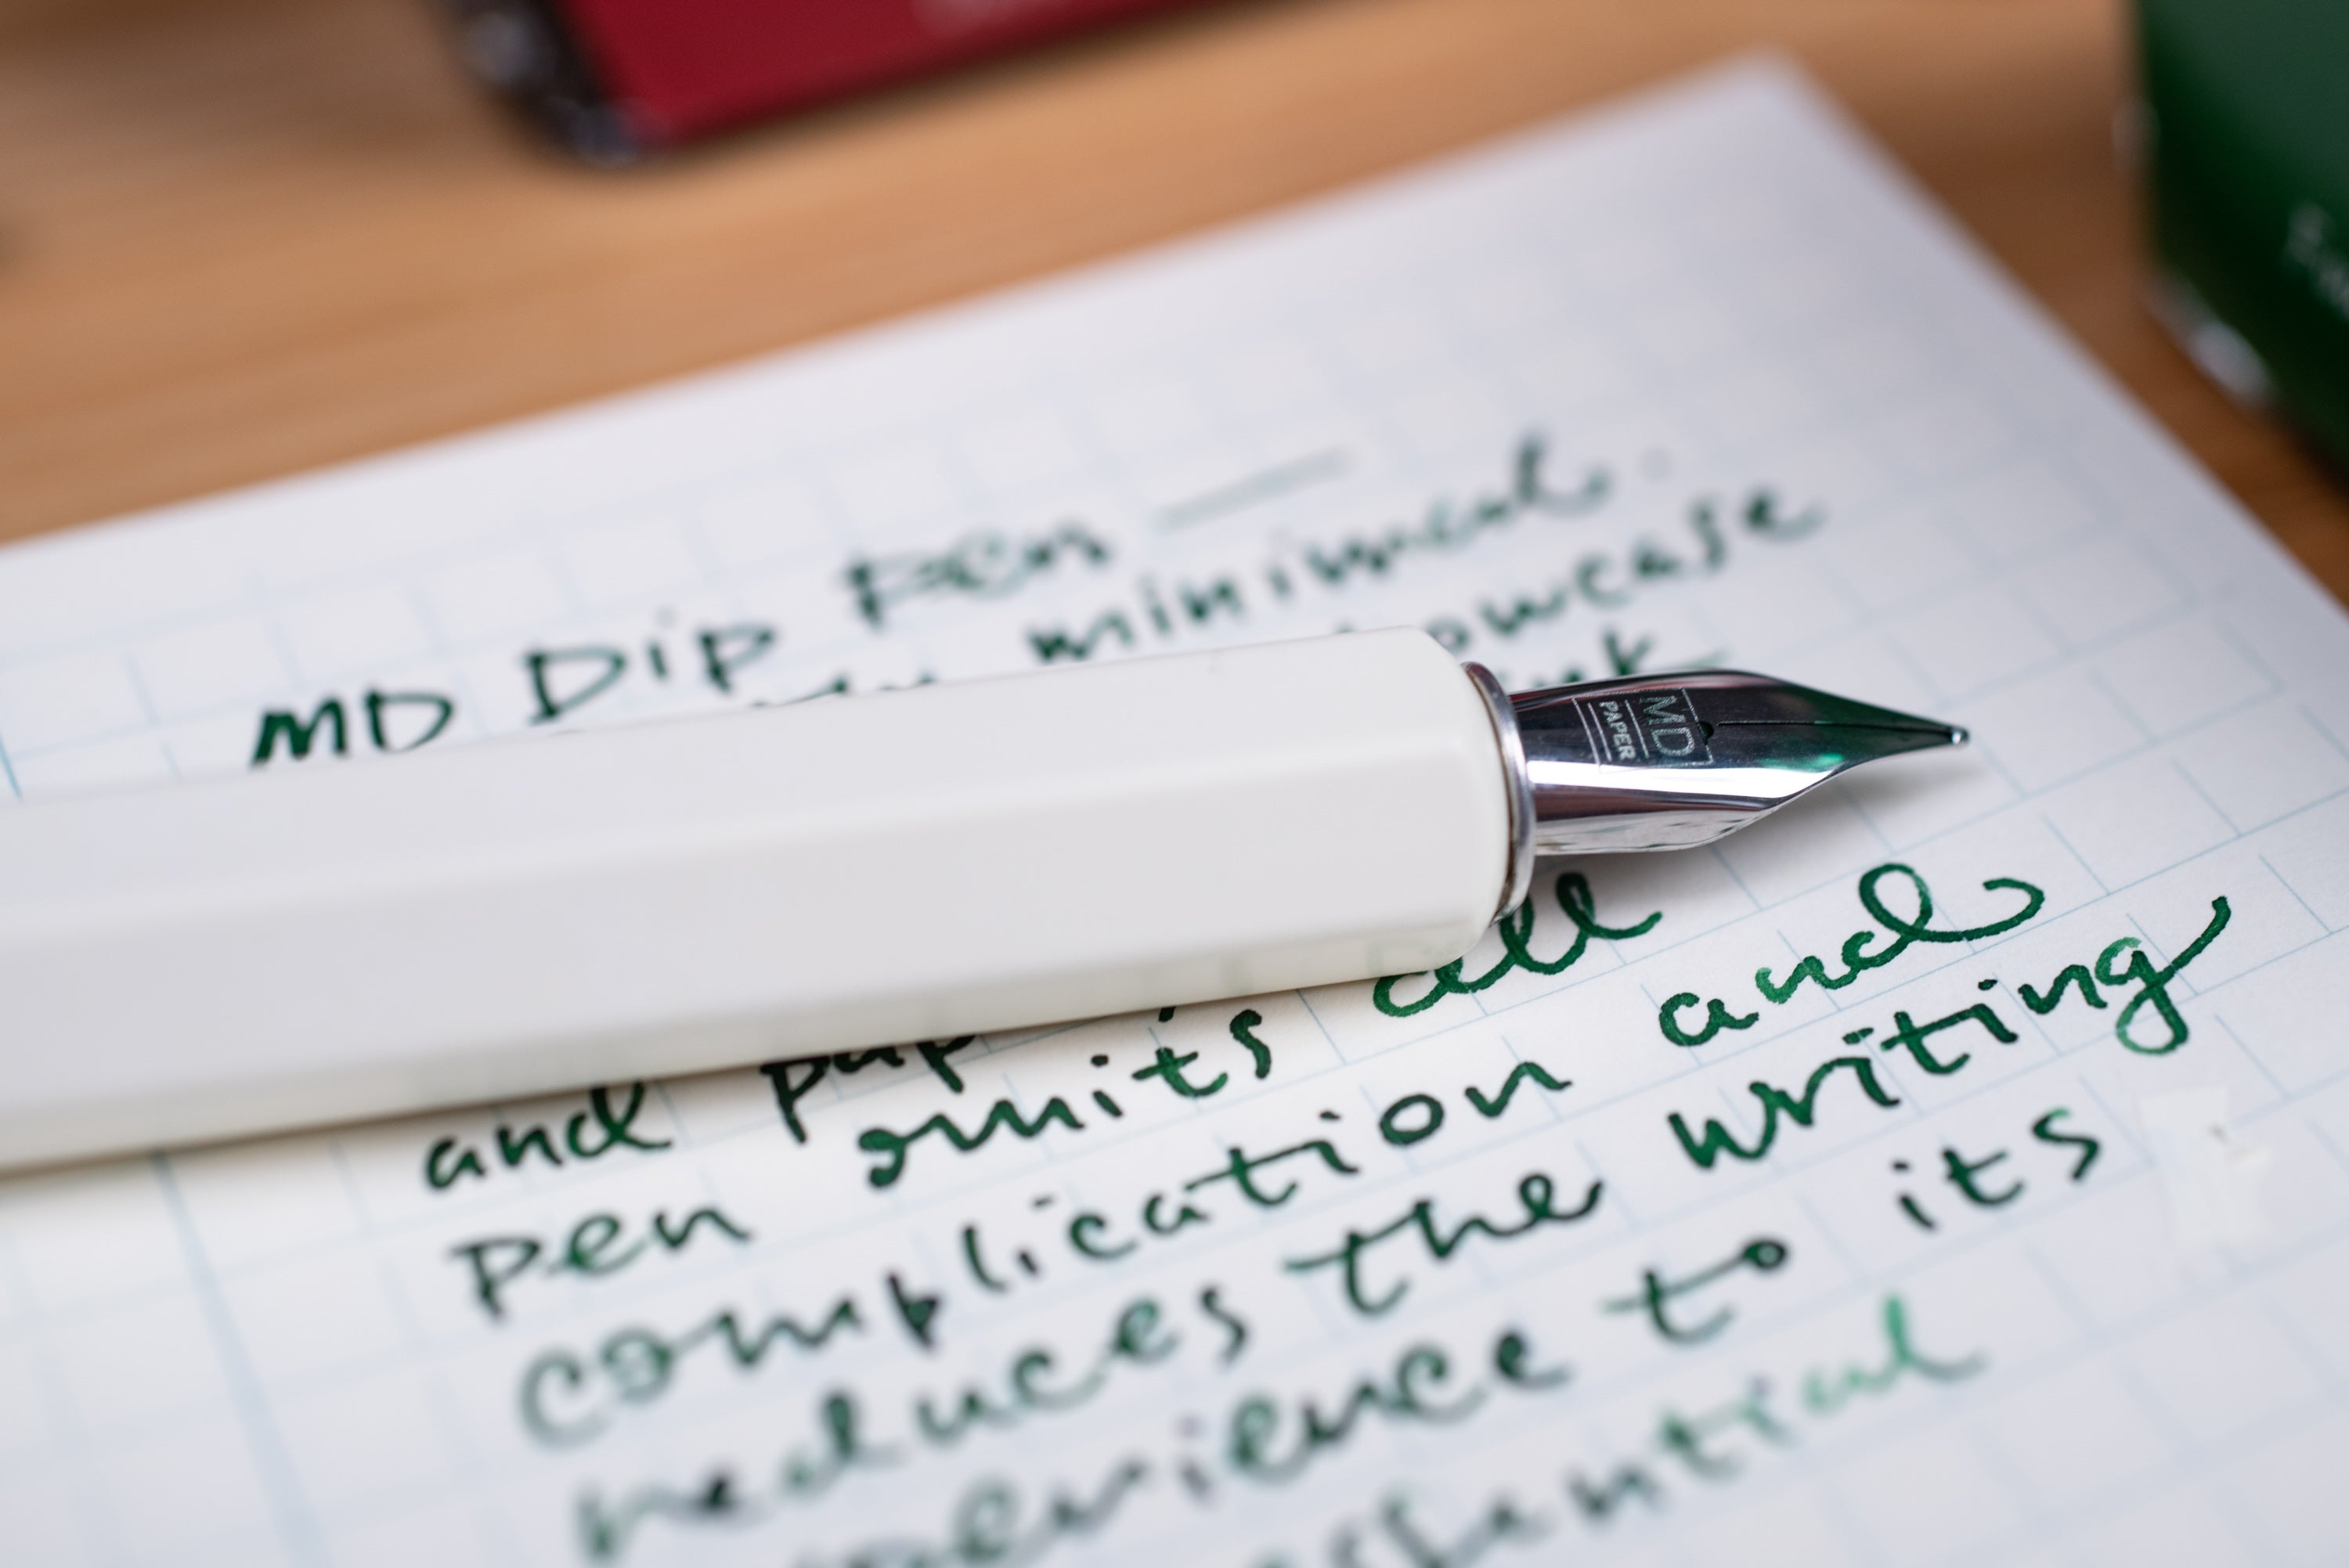 MD Dip Pen —
minimal.
showcase
ink
MD
PAPER
all
and pap
pen omits
complication and
reduces the writing
experience to its
essantial